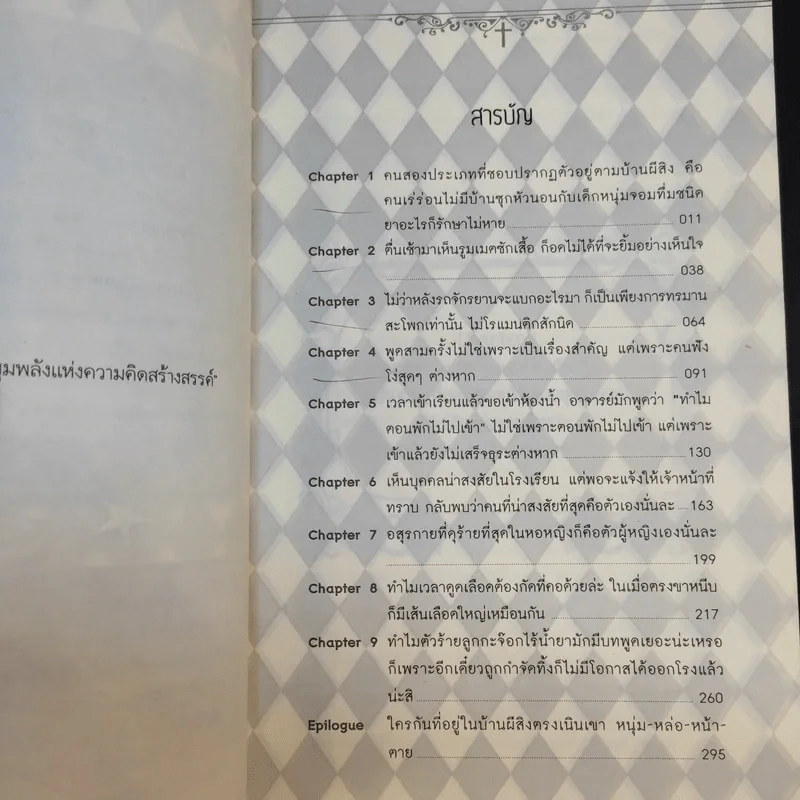 มพลังแห่งความคิดสร้างสรรค์"
สารบัญ
Chapter 1 คนสองประเภทที่ชอบปรากฏตัวอยู่ตามบ้านผีสิง คือ
คนเร่ร่อนไม่มีบ้านซุกหัวนอนกับเด็กหนุ่มจอมทึ่มชนิด
ยาอะไรก็รักษาไม่หาย 011
Chapter 2 ตื่นเช้ามาเห็นรูมเมตซักเสื้อ ก็อดไม่ได้ที่จะยิ้มอย่างเห็นใจ
038
Chapter 3 ไม่ว่าหลังรถจักรยานจะแบกอะไรมา ก็เป็นเพียงการทรมาน
สะโพกเท่านั้น ไม่โรแมนติกสักนิด 064
Chapter 4 พูดสามครั้งไม่ใช่เพราะเป็นเรื่องสำคัญ แต่เพราะคนฟัง
โง่สุดๆ ต่างหาก 091
Chapter 5 เวลาเข้าเรียนแล้วขอเข้าห้องน้ำ อาจารย์มักพูดว่า "ทำไม
ตอนพักไม่ไปเข้า" ไม่ใช่เพราะตอนพักไม่ไปเข้า แต่เพราะ
เข้าแล้วยังไม่เสร็จธุระต่างหาก 130
Chapter 6 เห็นบุคคลน่าสงสัยในโรงเรียน แต่พอจะแจ้งให้เจ้าหน้าที่
ทราบ กลับพบว่าคนที่น่าสงสัยที่สุดคือตัวเองนั่นละ 163
Chapter 7 อสุรกายที่ดุร้ายที่สุดในหอหญิงก็คือตัวผู้หญิงเองนั่นละ
199
Chapter 8 ทำไมเวลาดูดเลือดต้องกัดที่คอด้วยล่ะ ในเมื่อตรงขาหนีบ
ก็มีเส้นเลือดใหญ่เหมือนกัน 217
Chapter 9 ทำไมตัวร้ายลูกกะจ๊อกไร้น้ำยามักมีบทพูดเยอะน่ะเหรอ
ก็เพราะอีกเดี๋ยวถูกกำจัดทิ้งก็ไม่มีโอกาสได้ออกโรงแล้ว
น่ะสิ 260
Epilogue ใครกันที่อยู่ในบ้านผีสิงตรงเนินเขา หนุ่ม-หล่อ-หน้า-
ตาย 295